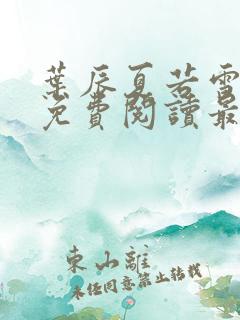 葉辰夏若雪
免費閱讀最
東山離
未經同意禁止轉載